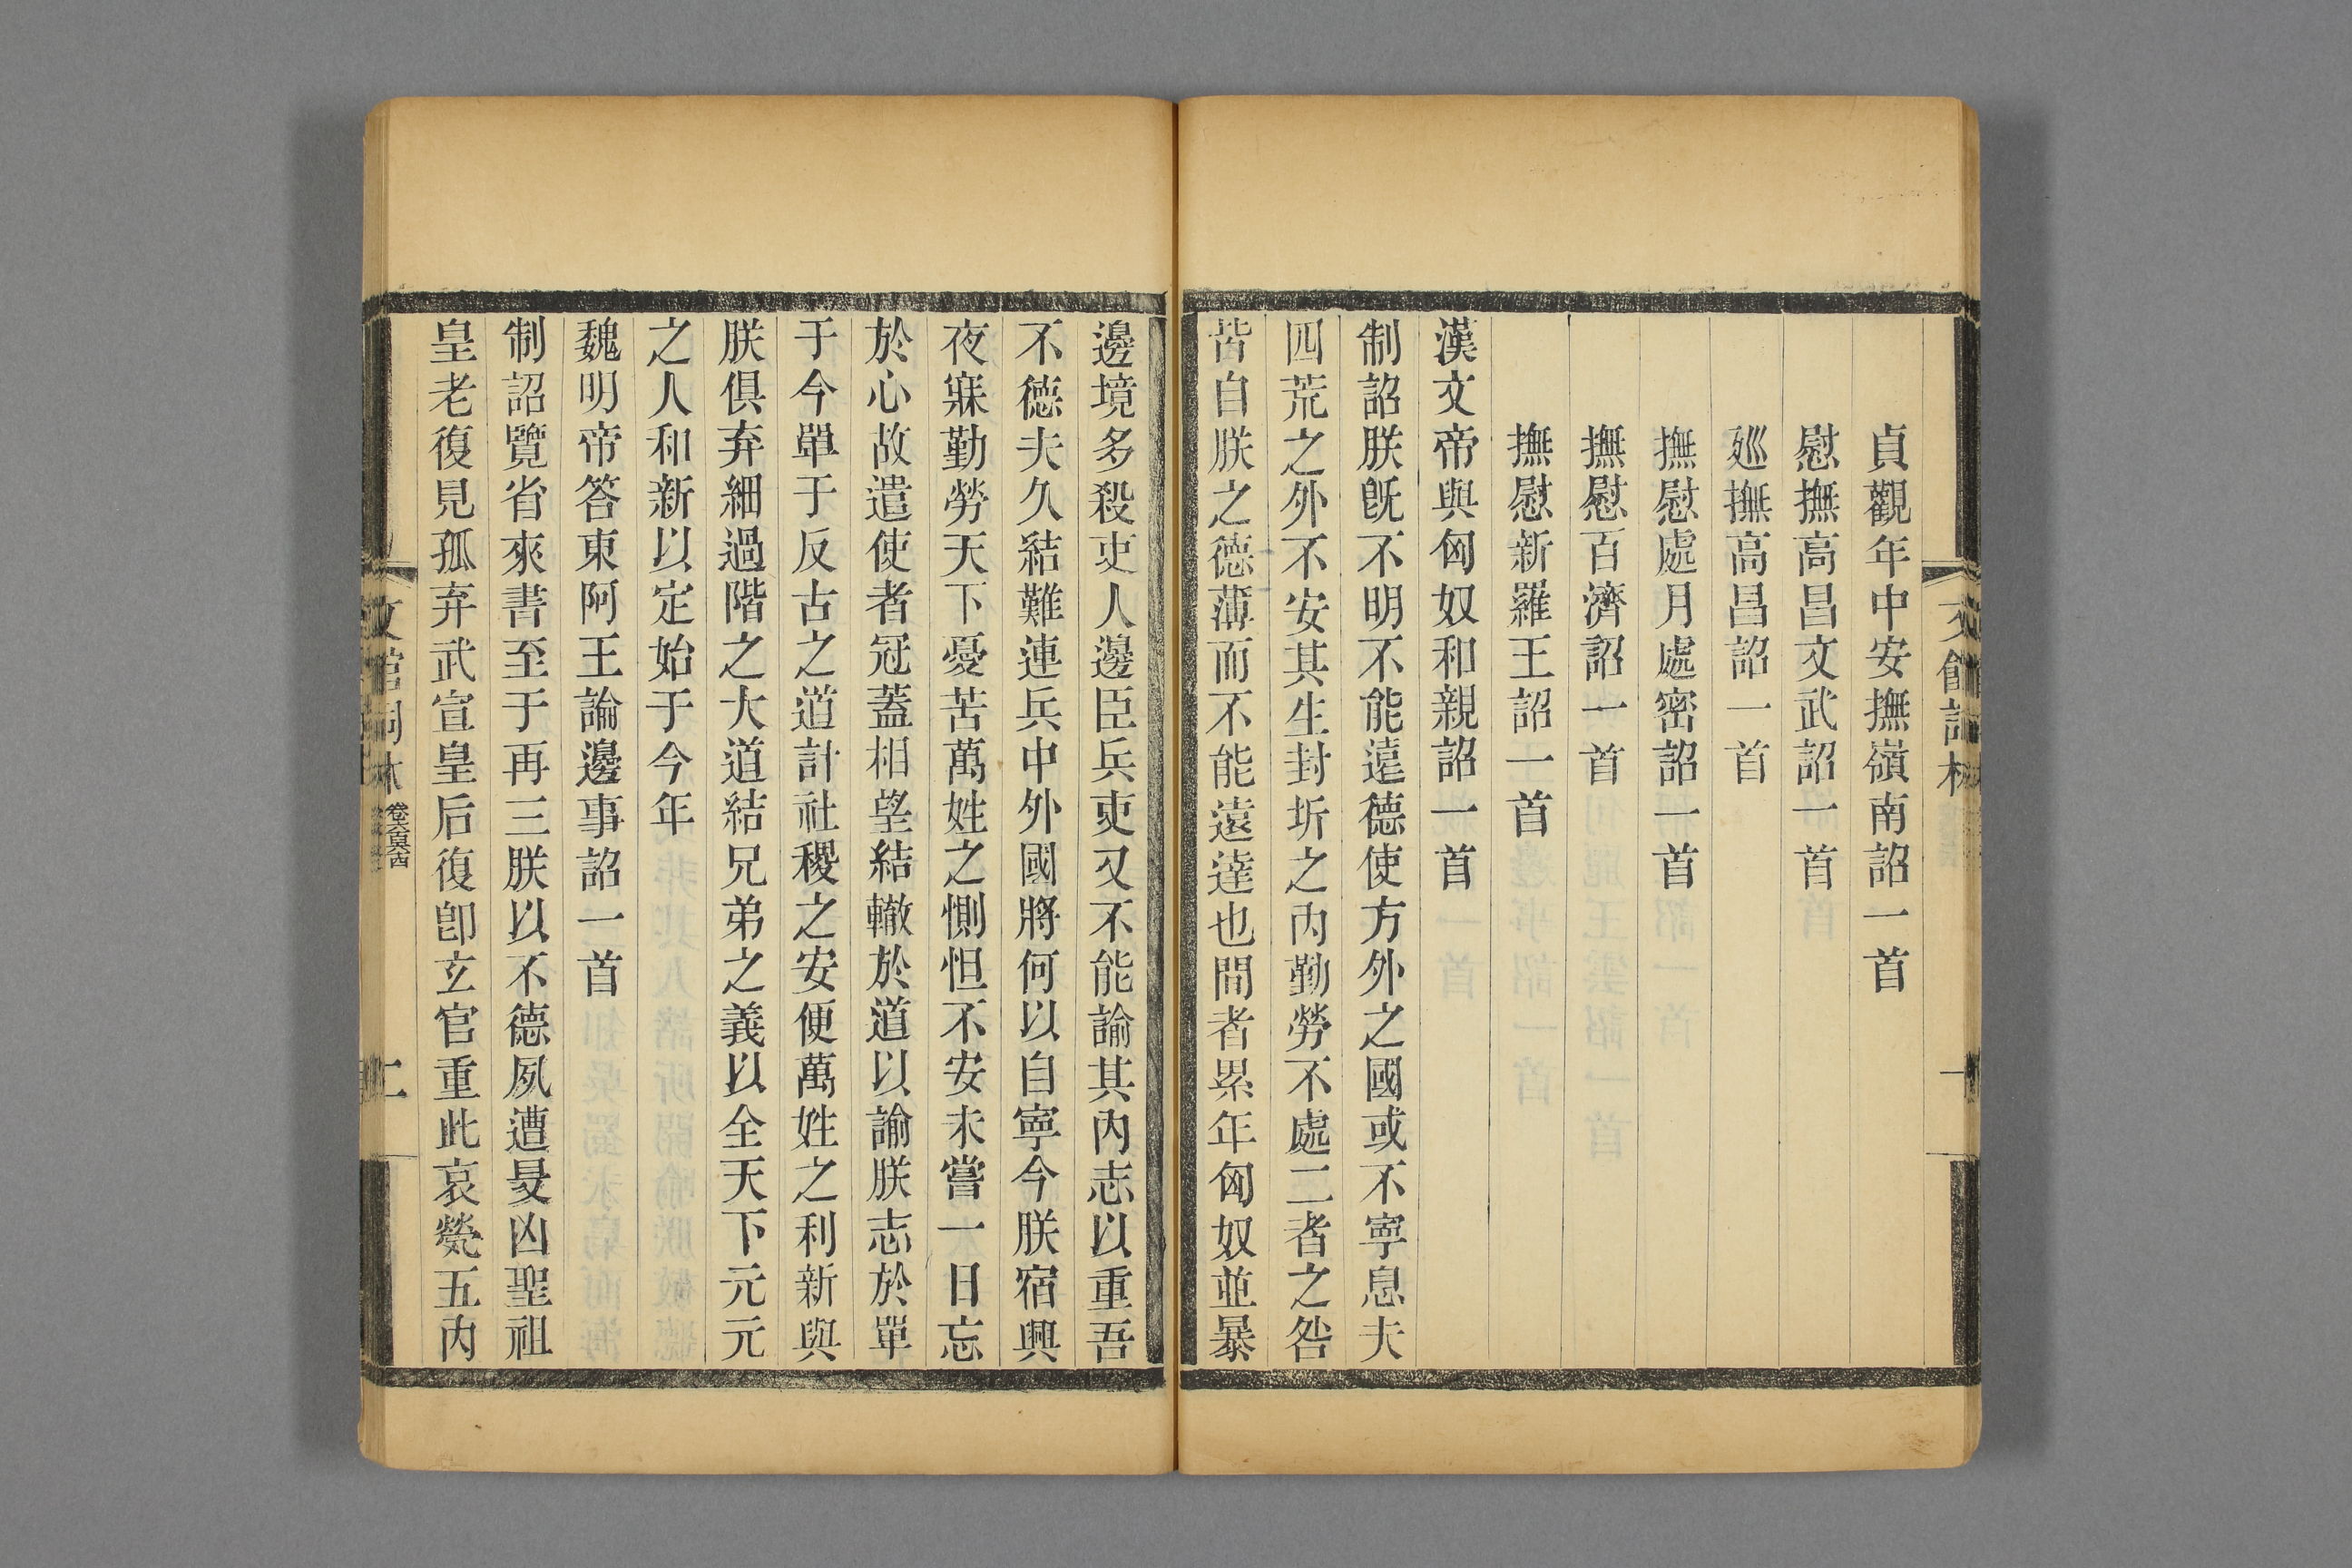 貞觀年中安撫嶺南詔一首
慰撫高昌文武詔一首
廵撫高昌詔一首
撫慰處月處密詔一首
撫慰百濟詔一首
撫慰新羅王詔一首
漢文帝與匈奴和親詔一首
制詔朕旣不明不能遠德使方外之國或不寧息夫
四荒之外不安其生封圻之內勤勞不處二者之咎
皆自朕之德薄而不能遠達也間者累年匈奴並暴
邊境多殺吏人邊臣兵吏又不能諭其內志以重吾
不德夫久結難連兵中外國將何以自寧今朕宿興
夜寐勤勞天下憂苦萬姓之惻怛不安未嘗一日忘
於心故遣使者冠蓋相望結轍於道以諭朕志於單
于今單于反古之道計社稷之安便萬姓之利新與
朕俱弃細過階之大道結兄弟之義以全天下元元
之人和新以定始于今年
魏明帝答東阿王論邊事詔一首
制詔覽省來書至于再三朕以不德夙遭旻凶聖祖
皇老復見孤弃武宣皇后復卽玄官重此哀煢五內
文館詞林
卷六百六十四
二